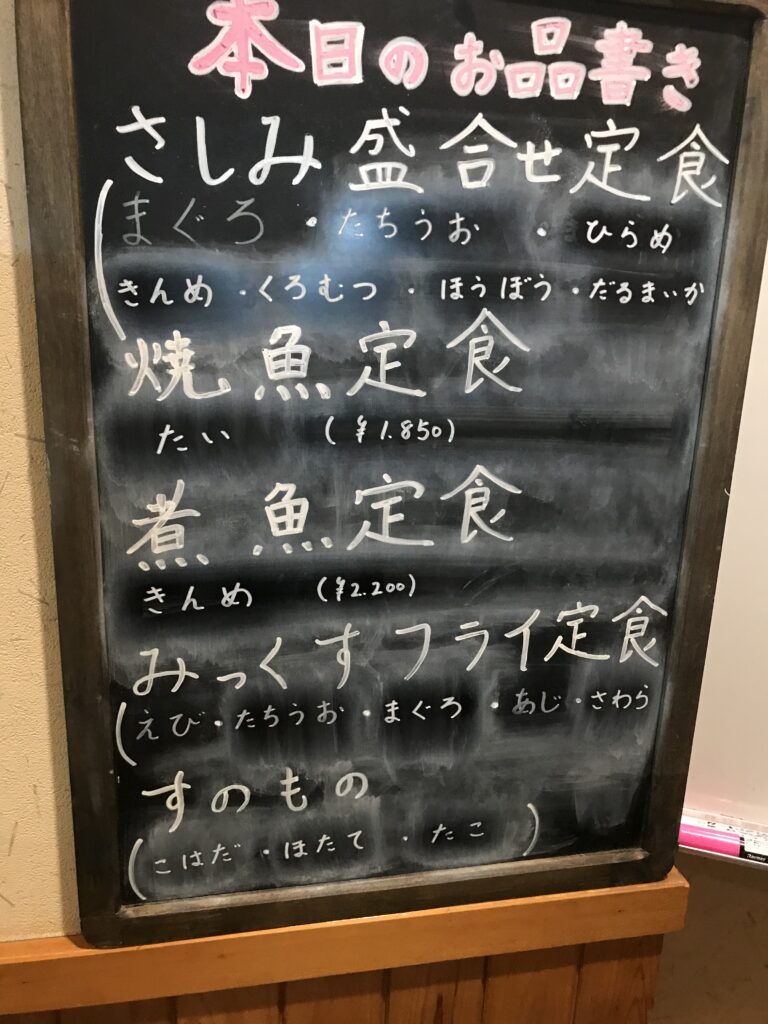 本日のお品書き
さしみ盛合せ定食
(まぐろ・たちうお・ひらめ
きんめ・くろむつ・ほうぼう・だるまいか
焼魚定食
たい (¥1.850)
煮魚定食
きんめ (¥2.200)
みっくすフライ定食
(えび・たちうお・まぐろ・あじ・さわら
すのもの
(こはだ・ほたて・たこ)